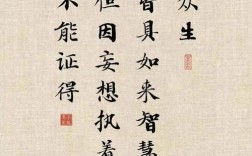 众生
皆具如来智慧
但因妄想执着
不能证得